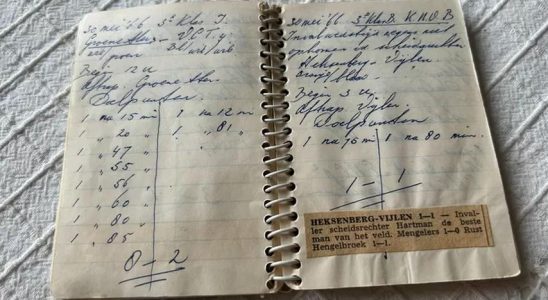 30 mei '66 3e klas J.
Groene ster - V.C.T.
Begin 12 u
Aftrap. Groene ster.
Doelpunten
1 na 15 mi 1 na 12 m
1 " 20 " 1 " 81 "
1 " 47 "
1 " 55 "
1 " 56 "
1 " 60 "
1 " 80 "
1 " 85
8 - 2
30 mei '66 3e klas B. K.N.V.B
Heksenberg - Vijlen.
Begin 3 u
Aftrap Vijlen.
Doelpunten
1 na 76 min 1 na 80 min.
1 - 1
HEKSENBERG-VIJLEN 1—1 — Inval-
ler scheidsrechter Hartman de beste
man van het veld. Mengelers 1—0 Rust
Hengelbroek 1—1.